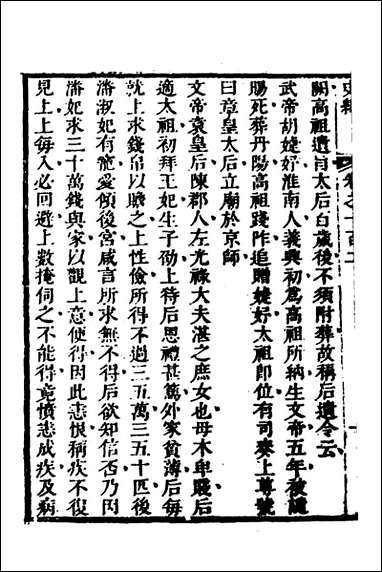 史緯
卷之一百
闕高祖遺旨太后百歲後不須附葬故稱后遺令云
武帝胡婕妤淮南人義興初爲高祖所納生文帝五年被譴
賜死葬丹陽高祖踐阼追贈婕妤太祖即位有司奏上尊號
曰章皇太后立廟於京師
文帝袁皇后陳郡人左光祿大夫湛之庶女也母本卑賤后
適太祖初拜王妃生子劭上待后恩禮甚篤外家貧薄后每
就上求錢帛以贍之上性儉所得不過三五萬三五十匹後
潘淑妃有寵愛傾後宮咸言所求無不得后欲知信否乃因
潘妃求三十萬錢與家以觀上意便得因此恚恨稱疾不復
見上上每入必回避上數掩伺之不能得竟憤恚成疾及病